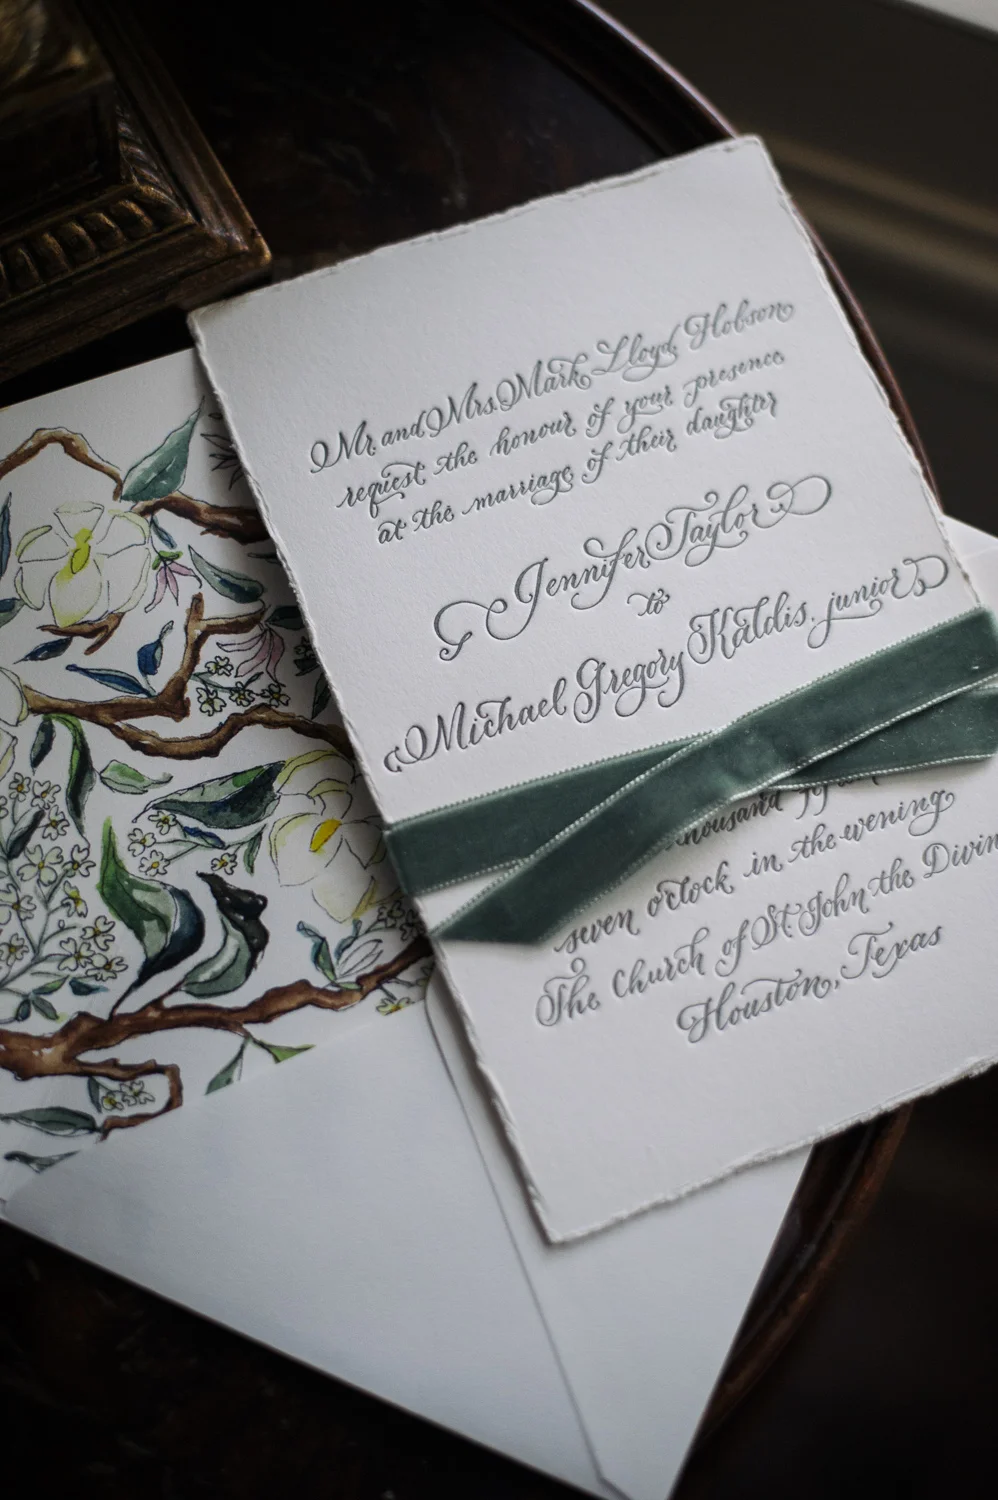 Mr. and Mrs. Mark Lloyd Hobson
request the honour of your presence
at the marriage of their daughter
Jennifer Taylor
to
Michael Gregory Kaldis, junior
thousand
seven o'clock in the evening
The Church of St. John the Divin
Houston, Texas